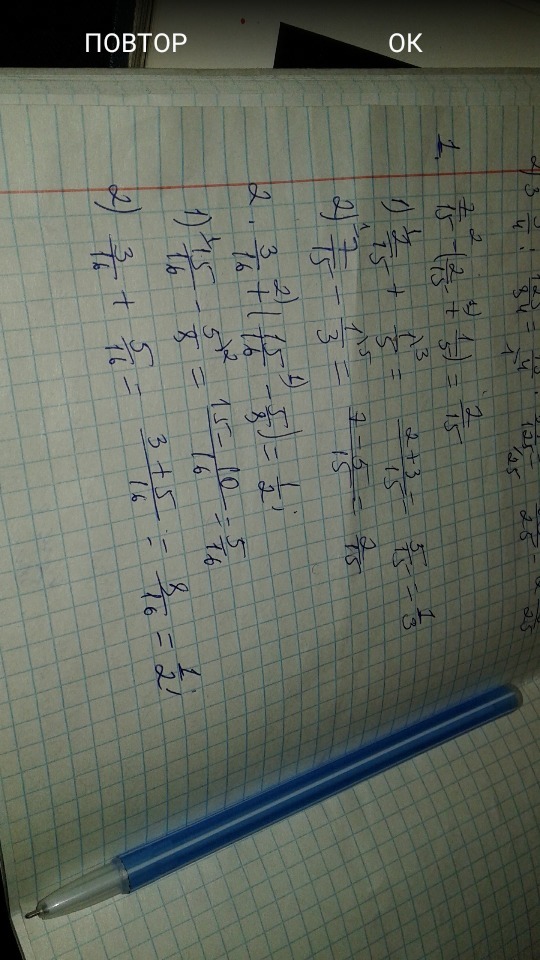 ПОВТОР
ОК
1. 7/15 - (2/15 + 1/5) = 2/15
1) 2/15 + 1/5 = (2+3)/15 = 5/15 = 1/3
2) 7/15 - 1/3 = (7-5)/15 = 2/15
2. 3/16 + (15/16 - 5/8) = 1/2;
1) 15/16 - 5/8 = (15-10)/16 = 5/16
2) 3/16 + 5/16 = (3+5)/16 = 8/16 = 1/2;